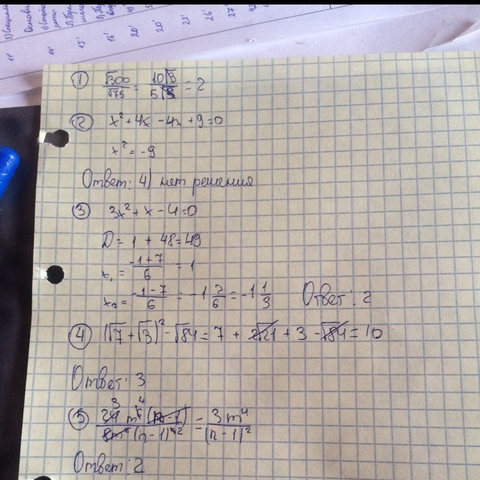 ① √300/√75 = 10√3/5√3 = 2
② x² + 4x - 4x + 9 = 0
x² = -9
Ответ: 4) нет решения
③ 3x² + x - 4 = 0
D = 1 + 48 = 49
x₁ = (-1+7)/6 = 1
x₂ = (-1-7)/6 = -1 2/6 = -1 1/3 Ответ: 2
④ (√7 + √3)² - √84 = 7 + 2√21 + 3 - √84 = 10
Ответ: 3
= 3m⁴/(n-1)²
Ответ: 2